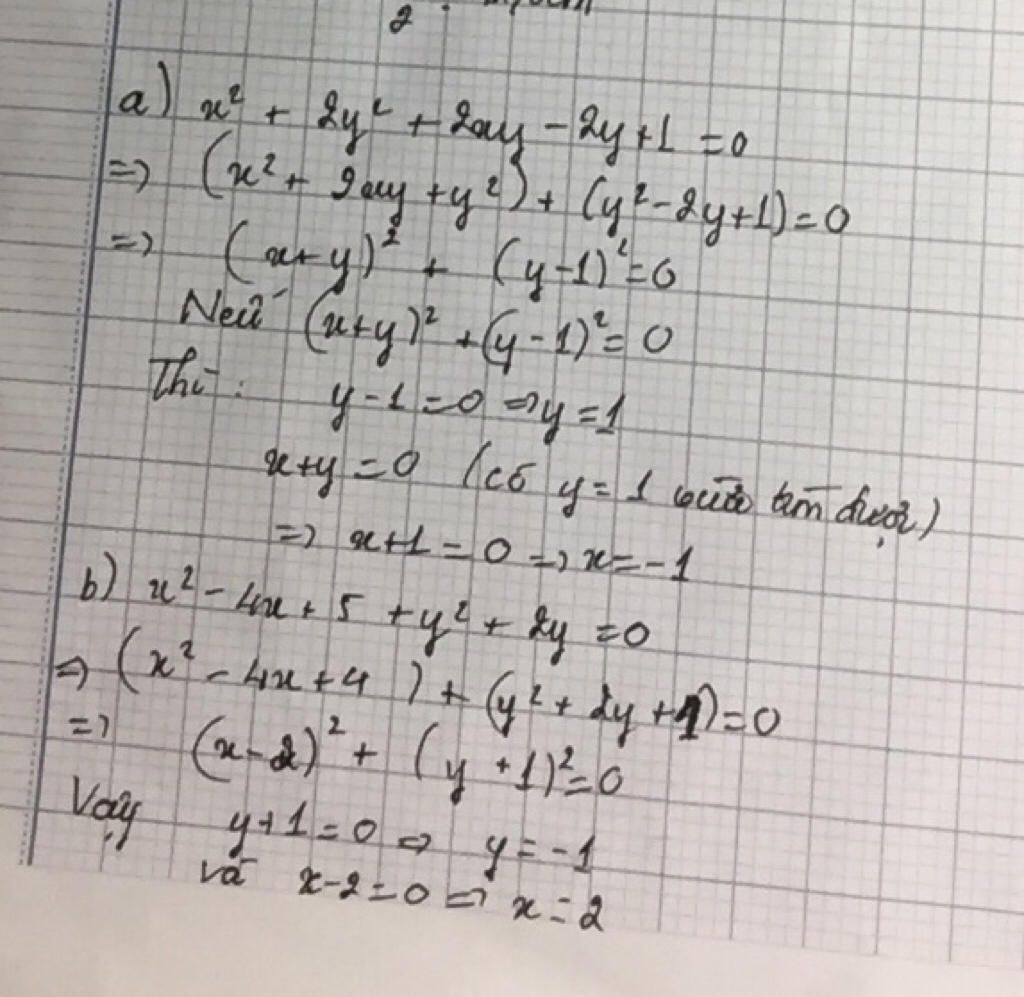 2
a) x² + 2y² + 2xy - 2y + 1 = 0
=> (x² + 2xy + y²) + (y² - 2y + 1) = 0
=> (x + y)² + (y - 1)² = 0
Nếu (x + y)² + (y - 1)² = 0
Thì : y - 1 = 0 => y = 1
x + y = 0 (có y = 1 vừa tìm được)
=> x + 1 = 0 => x = -1
b) x² - 4x + 5 + y² + 2y = 0
=> (x² - 4x + 4 ) + (y² + 2y + 1) = 0
=> (x - 2)² + (y + 1)² = 0
Vậy y + 1 = 0 => y = -1
và x - 2 = 0 => x = 2